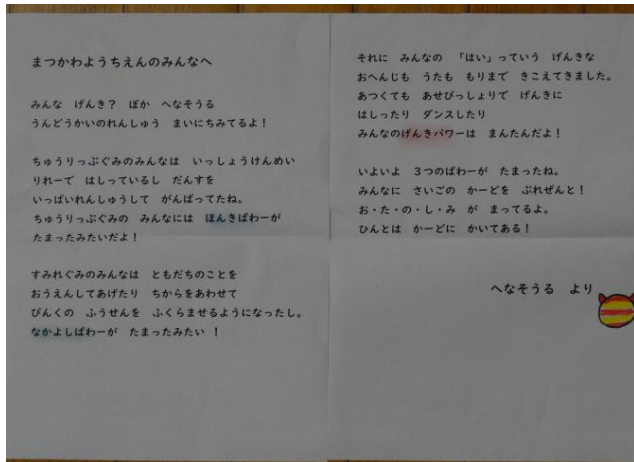 まつかわようちえんのみんなへ
みんな　げんき？　ぼか　へなそうる
うんどうかいのれんしゅう　まいにちみてるよ！
ちゅうりっぷぐみのみんなは　いっしょうけんめい
りれーで　はしっているし　だんすを
いっぱいれんしゅうして　がんばってたね。
ちゅうりっぷぐみの　みんなには　ほんきぱわーが
たまったみたいだよ！
すみれぐみのみんなは　ともだちのことを
おうえんしてあげたり　ちからをあわせて
ぴんくの　ふうせんを　ふくらませるようになったし。
なかよしぱわーが　たまったみたい　！
それに　みんなの　「はい」っていう　げんきな
おへんじも　うたも　もりまで　きこえてきました。
あつくても　あせびっしょりで　げんきに
はしったり　ダンスしたり
みんなのげんきパワーは　まんたんだよ！
いよいよ　３つのぱわーが　たまったね。
みんなに　さいごの　かーどを　ぷれぜんと！
お・た・の・し・み　が　まってるよ。
ひんとは　かーどに　かいてある！
へなそうる　より